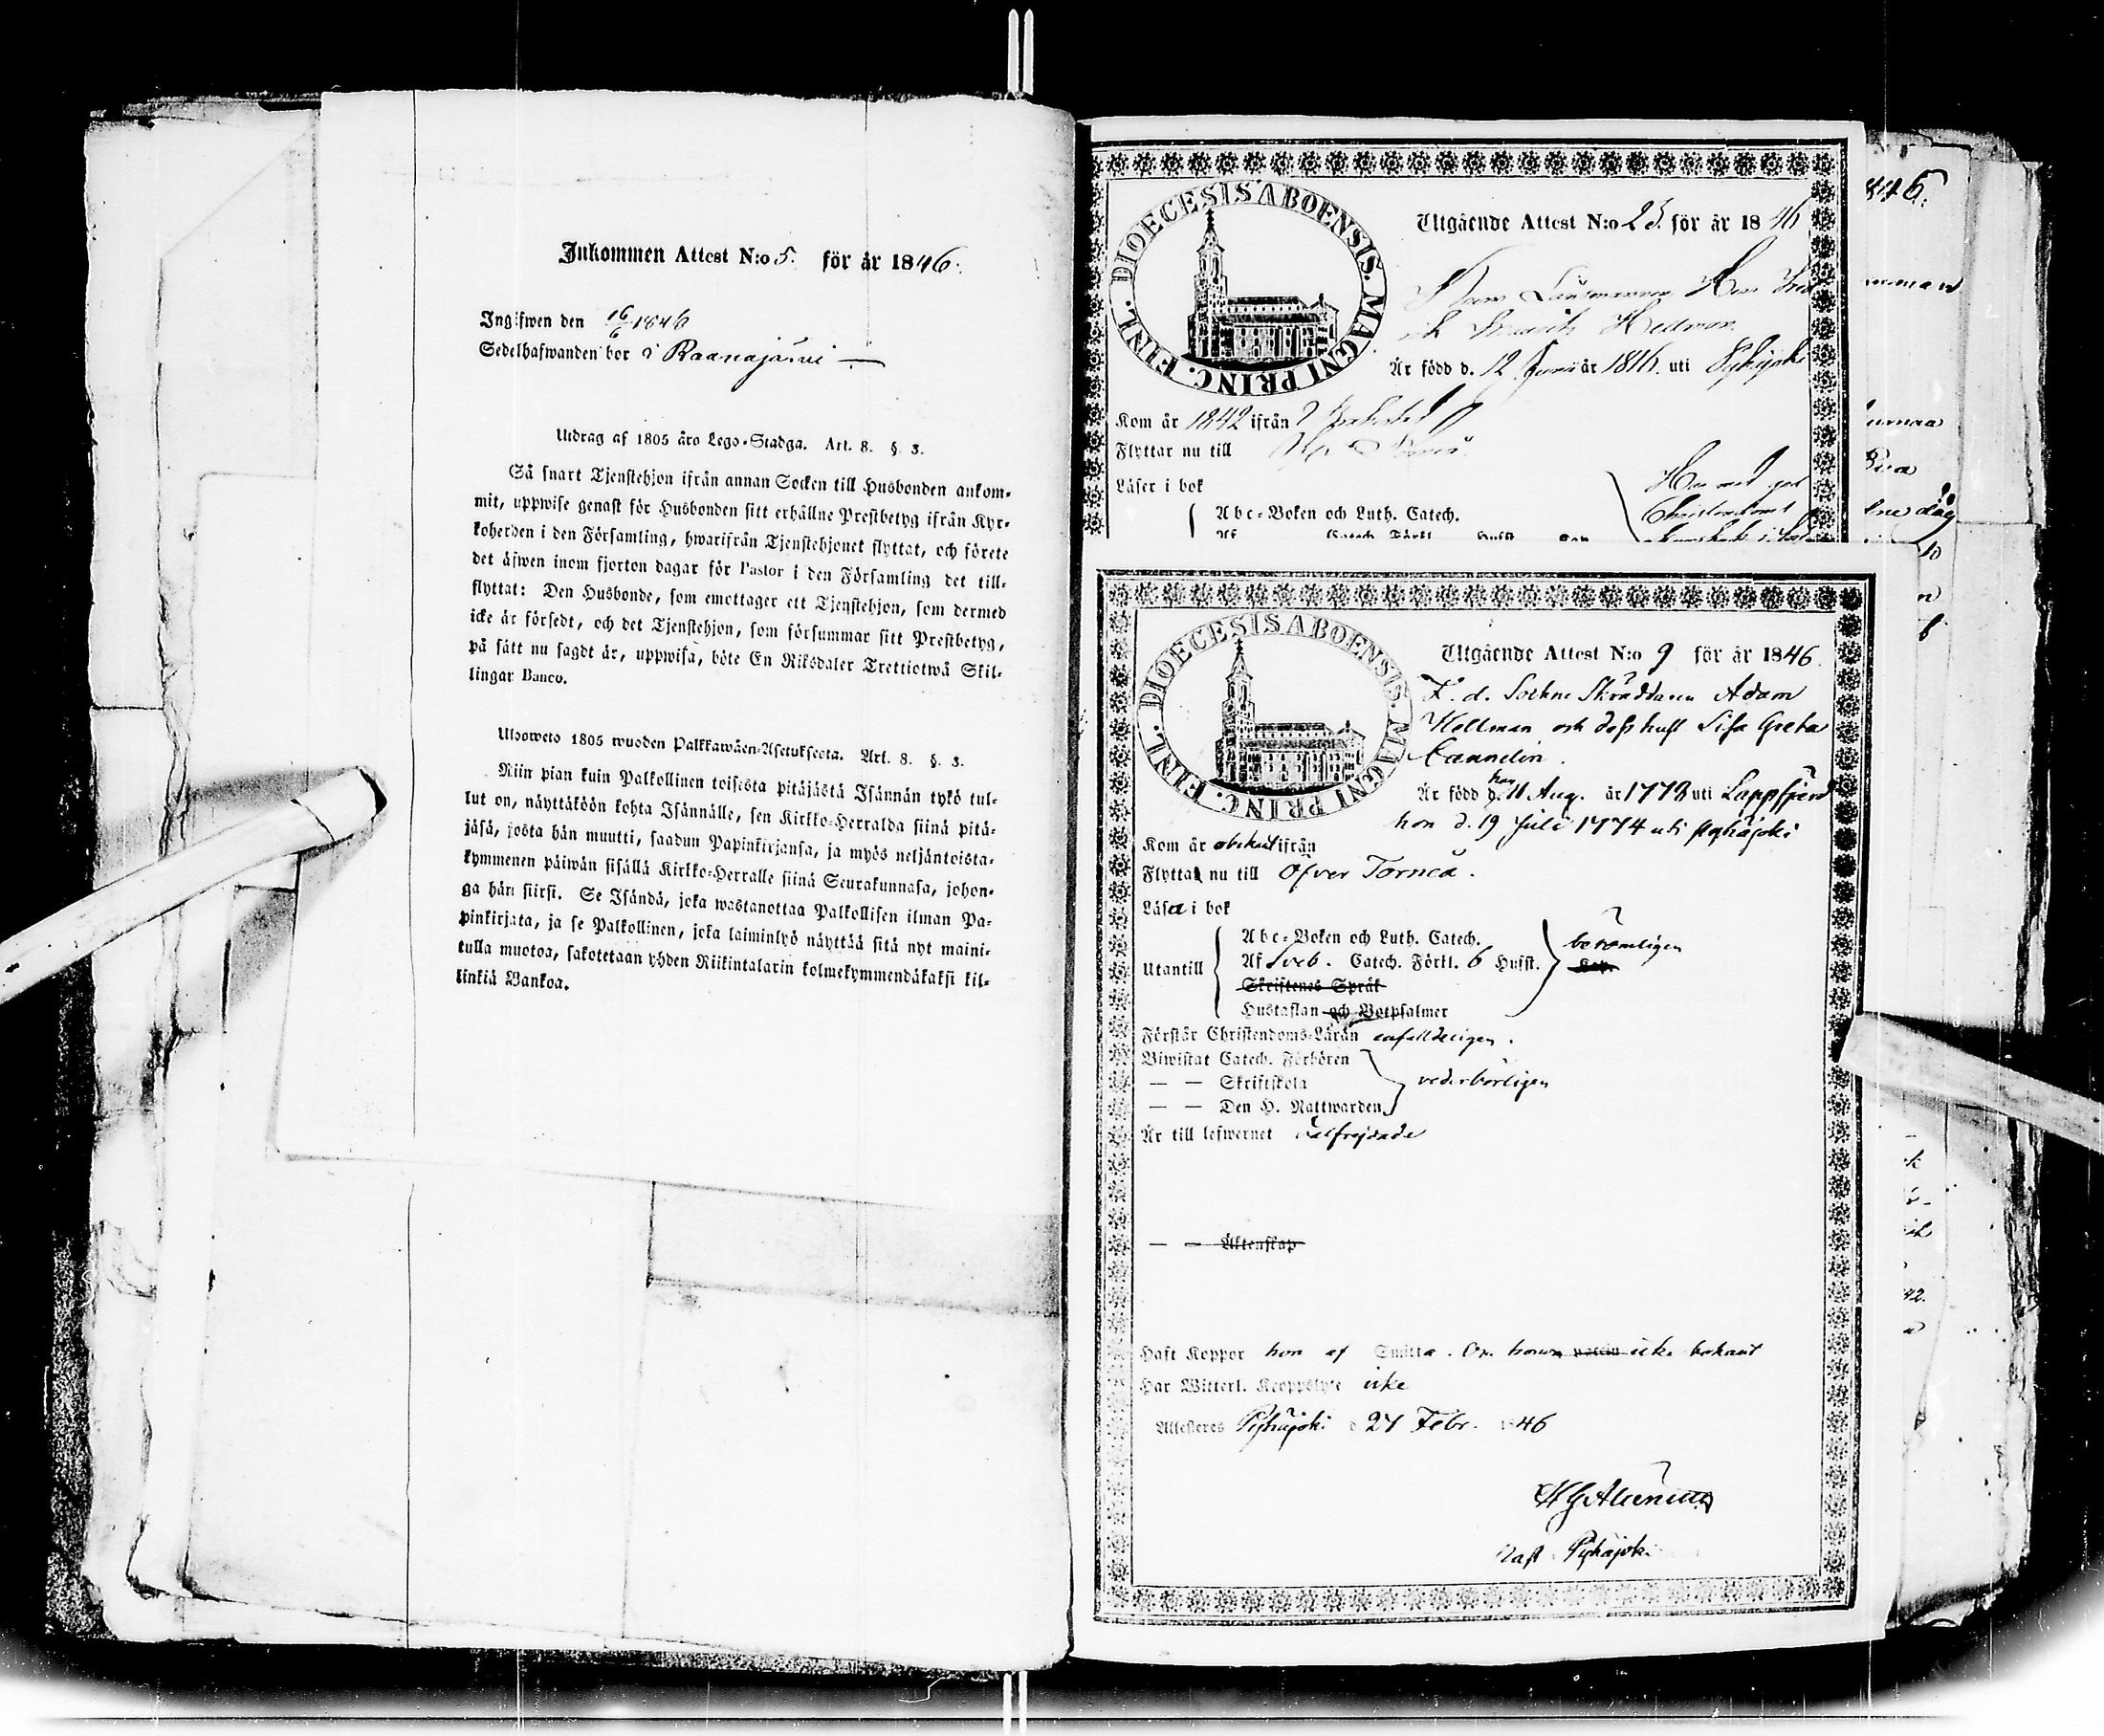 Inkommen Attest N:o 5. för år 1846.
Ingifwen den 16/6 1846
Sedelhafwanden bor i Raanajärvi —
Utdrag af 1805 års Lego-Stadga. Art. 8. §. 3.
Så snart Tjenstehjon ifrån annan Socken till Husbonden ankom-
mit, uppwise genast för Husbonden sitt erhållne Prestbetyg ifrån Kyr-
koherden i den Församling, hwarifrån Tjenstehjonet flyttat, och förete
det äfwen inom fjorton dagar för Pastor i den Församling det till-
flyttat: Den Husbonde, som emottager ett Tjenstehjon, som dermed
icke är försedt, och det Tjenstehjon, som försummar sitt Prestbetyg,
på sätt nu sagdt är, uppwisa, böte En Riksdaler Trettiotwå Skil-
lingar Banco.
Ulosweto 1805 wuoden Palkkawäen-Asetuksesta. Art. 8. §. 3.
Niin pian kuin Palkollinen toisesta pitäjästä Isännän tykö tul-
lut on, näyttäköön kohta Isännälle, sen Kirkko-Herralda siinä pitä-
jäsä, josta hän muutti, saadun Papinkirjansa, ja myös neljäntoista-
kymmenen päiwän sisällä Kirkko-Herralle siinä Seurakunnasa, johon-
ga hän siirsi. Se Isändä, joka wastanottaa Palkollisen ilman Pa-
pinkirjata, ja se Palkollinen, joka laiminlyö näyttää sitä nyt maini-
tulla muotoa, sakotetaan yhden Riikintalarin kolmekymmendäkaksi kil-
linkiä Bankoa.
DIOECESIS ABOENSIS. MAGNI PRINC. FINL.
Utgående Attest N:o 23. för år 1846
Hellman
Är född d. 12 Junii år 1816. uti Pyhäjoki
Kom år 1842 ifrån
Flyttar nu till
Läser i bok
Abc-Boken och Luth. Catech.
DIOECESIS ABOENSIS. MAGNI PRINC. FINL.
Utgående Attest N:o 9 för år 1846.
F. d. Sockne Skräddaren Adam
Hellman och dess hust. Lisa Greta
Cannelin.
han
Är född d. 11 Aug. år 1778 uti Lappfjerd
hon d. 19 Juli 1774 uti Pyhäjoki
Kom år obekant ifrån
Flytta nu till Öfver Torneå.
Läsa i bok
Utantill
Abc-Boken och Luth. Catech.
Af Sveb. Catech. Förkl. 6 Hufst.
berömligen
Skriftenes Språk
Hustaflan och Botpsalmer
Förstår Christendoms-Läran enfaldeligen.
Biwistat Catech. Förhören
— — Skriftskola
vederbörligen
— — Den H. Nattwarden
Är till lefwernet välfrejdade
— — Äktenskap
Haft Koppor hon af Smitta. Om honom icke bekant
Har Witterl. Kroppslyte icke
Attesteres Pyhäjoki d 27 Febr. 1846
Past. Pyhäjoki